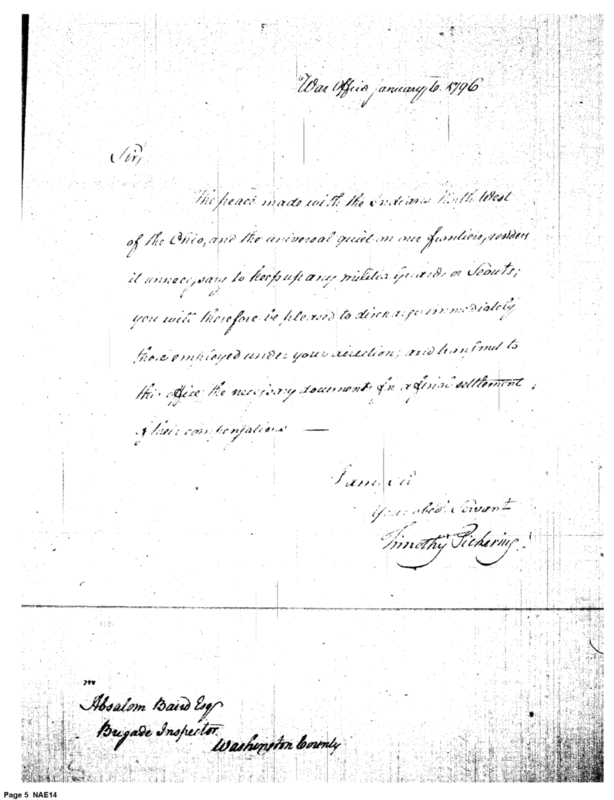 War Office January 6. 1796
Sir,
The peace made with the Indians North West
of the Ohio, and the universal quiet on our frontiers, renders
it unnecessary to keep up any militia Guards or Scouts;
you will therefore be pleased to discharge immediately
those employed under your direction; and transmit to
this office the necessary documents for a final settlement
of their compensations —
I am Sir
Your obed. Servant
Timothy Pickering
Absalom Baird Esq
Brigade Inspector
Washington County
Page 5 NAE14